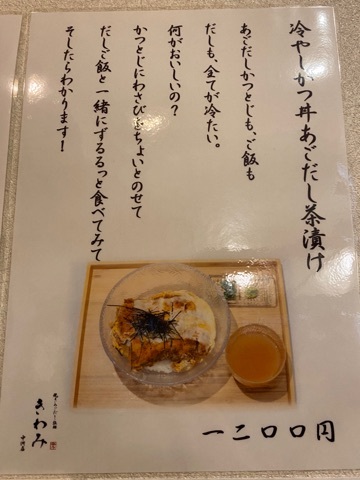 冷やしかつ丼あごだし茶漬け
あごだしかつとじも、ご飯も
だしも、全てが冷たい。
何がおいしいの?
かつとじにわさびをちょいとのせて
だしご飯と一緒にずるるっと食べてみて
そしたらわかります!
一二〇〇円
きわみ